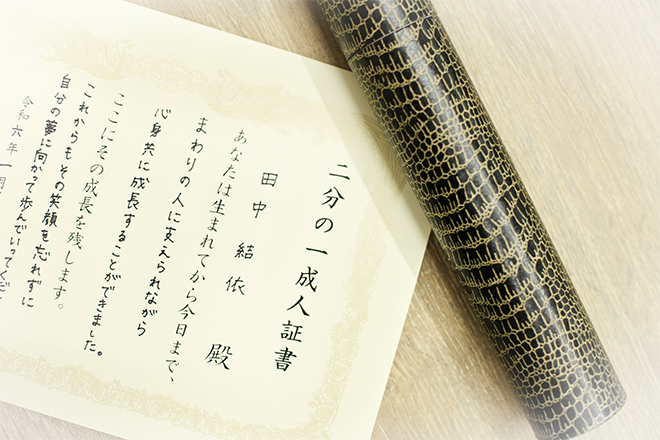 二分の一成人証書
田中 結依 殿
あなたは生まれてから今日まで、
まわりの人に支えられながら
心身共に成長することができました。
ここにその成長を残します。
これからもその笑顔を忘れずに
自分の夢に向かって歩んでいってくだ
令和六年一月